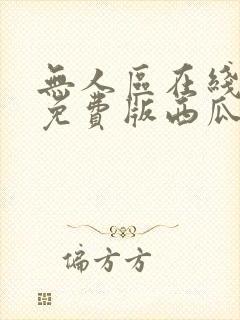 無人區在綫
免費版西瓜
偏方方